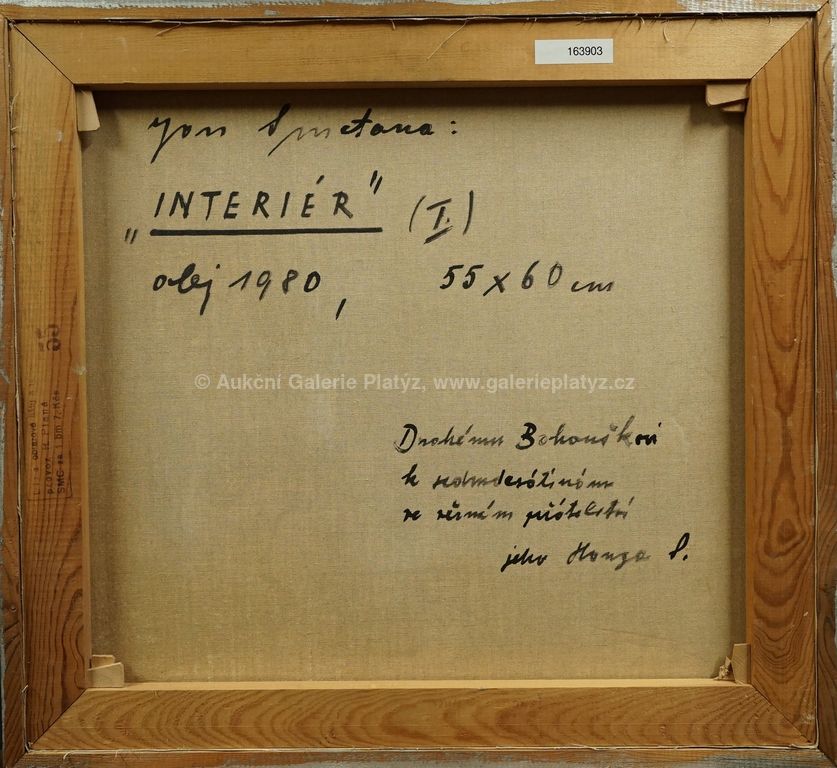 163903
Jan Smetana:
„INTERIÉR" (I.)
olej 1980, 55 x 60 cm
© Aukční Galerie Platýz, www.galerieplatyz.cz
Drahému Bohouškovi
k sedmdesátinám
ve věrném přátelství
jeho Honza S.
55
provoz H. Planá